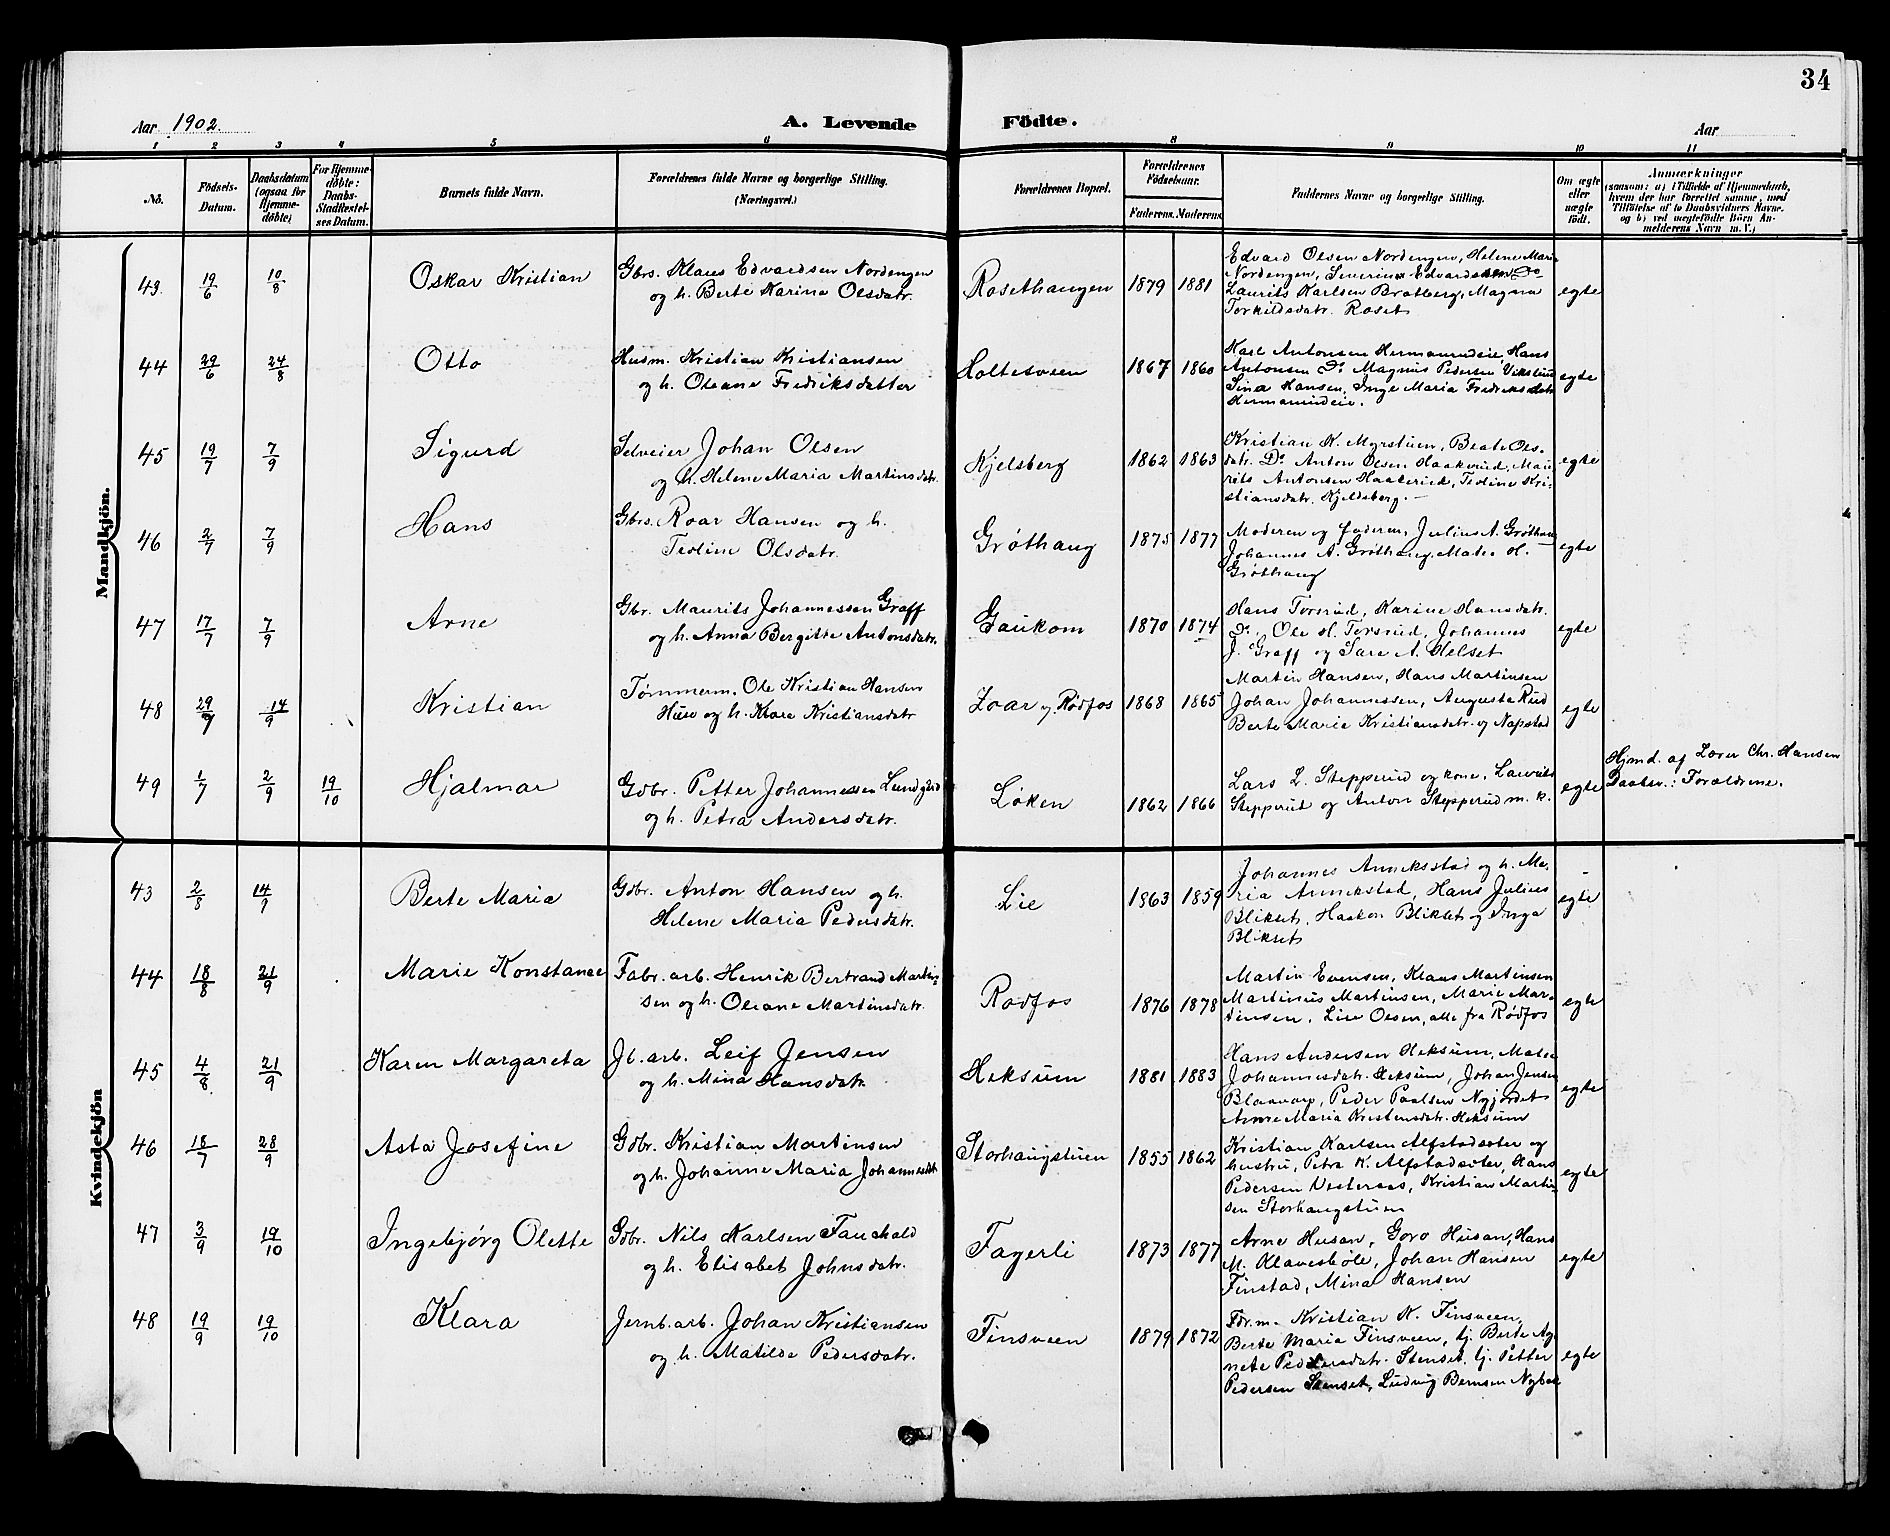 34
Aar 1902. A. Levende Födte. Aar
1 2 3 4 5 6 8 9 10 11
No. Födsels-Datum. Daabsdatum (ogsaa for Hjemmedöbte) For Hjemmedöbte: Daabs-Stadfæstelses Datum. Barnets fulde Navn. Forældrenes fulde Navne og borgerlige Stilling. (Næringsvei.) Forældrenes Bopæl. Forældrenes Födselsaar. Faderens. Moderens. Faddernes Navne og borgerlige Stilling. Om ægte eller uægte födt. Anmærkninger (saasom: a) i Tilfælde af Hjemmedaab, hvem der har forrettet samme, med Tilföielse af to Daabsvidners Navne, og b) ved uægtefödte Börn Anmelderens Navn m. V.)
Mandkjön.
43. 19/6 10/8 Oskar Kristian Gbrs. Klaus Edvardsen Nordengen Rosethaugen 1879 1881 Edvard Olsen Nordengen, Helene Marie egte
og h. Berte Karina Olsdatr.
Nordengen, Severin Edvardsen Do
Laurits Karlsen Bratberg, Magna
Torkildsdatr. Roset
44 29/6 24/8 Otto Husm. Kristian Kristiansen Holtesveen 1867 1860 Karl Antonsen Hermanrudeie, Hans egte
og h. Oleane Fredriksdatter
Antonsen Do Magnus Pedersen
Sina Hansen, Inge Maria Fredriksdatr
Hermanrudeie.
45 19/7 7/9 Sigurd Selveier Johan Olsen Kjelsberg 1862 1863 Kristian K. Myrstuen, Beate Ols- egte
og h. Helene Maria Martinsdatr.
datr. Do Anton Olsen Haakerud, Mau-
rits Antonsen Haakerud, Teoline Kri-
stiansdatr. Kjeldsberg.
46 2/7 7/9 Hans Gbrs. Roar Hansen og h. Grøthaug 1875 1877 Moderen og faderen, Julius A. Grøthaug egte
Teoline Olsdatr.
Johannes A. Grøthaug, Matea H.
Grøthaug
47 17/7 7/9 Arne Gbr. Maurits Johannessen Graff Gaukom 1870 1874 Hans Torsrud, Karine Hansdatr. egte
og h. Anna Bergitte Antonsdatr.
Do, Ole H. Torsrud, Johannes
J. Graff og Sare A. Helset
48 29/7 14/9 Kristian Tømmerm. Ole Kristian Hansen Zoar v. Rødfos 1868 1865 Martin Hansen, Hans Martinsen egte
Huse og h. Klara Kristiansdatr
Johan Johannessen, Augusta Rud
Berte Marie Kristiansdatr. og Napstad
49 1/7 2/9 19/10 Hjalmar Gdbr. Petter Johannessen Løken 1862 1866 Lars L. Stepperud og kone, Laurits egte Hjmd. af Lærer Chr. Hansen
og h. Petra Andersdatr.
Stepperud og Anton Stepperud m. k.
Daabsv.: Forældrene.
Kvindekjön
43 2/8 14/9 Berte Maria Gdbr. Anton Hansen og h. Lie 1863 1859 Johannes Anneksstad og h. Ma- egte
Helene Maria Pedersdatr.
ria Annekstad, Hans Julius
Blikset, Haakon Blikset og Inga
Blikset
44 18/8 21/9 Marie Konstance Fabr. arb. Henrik Bertrand Martin- Rødfos 1876 1878 Martin Evensen, Klaus Martinsen egte
sen og h. Oleane Martinsdatr.
Martinus Martinsen, Marie Mar-
tinsen, Lise Olsen, alle fra Rødfos
45 4/8 21/9 Karen Margareta Jb. arb. Leif Jensen Heksum 1881 1883 Hans Andersen Heksum, Matea egte
og h. Mina Hansdatr.
Johannesdatr. Heksum, Johan Jensen
Blaavarp, Peder Paulsen Nyjordet
Anne Maria Kristensdatr. Heksum
46 18/7 28/9 Asta Josefine Gdbr. Kristian Martinsen Storhaugstuen 1855 1862 Kristian Karlsen Alfstadsæter og egte
og h. Johanne Maria Johannesdtr
hustru, Petra K. Alfstadsæter, Hans
Pedersen Vesteraas, Kristian Martin-
sen Storhaugstuen
47 3/9 19/10 Ingebjørg Olette Gdbr. Nils Karlsen Fauchald Fagerli 1873 1877 Arne Husan, Goro Husan, Hans egte
og h. Elisabet Johnsdatr.
M. Klavesbøle, Johan Hansen
Finstad, Mina Hansen
48 19/9 19/10 Klara Jernb. arb. Johan Kristiansen Finsveen 1879 1872 For.m. Kristian K. Finsveen, egte
og h. Matilde Pedersdatr.
Berte Maria Finsveen, tj. Berte Ag-
nete Pedersdatr. Stenset, tj. Petter
Pedersen Stenset, Ludvig Bernsen